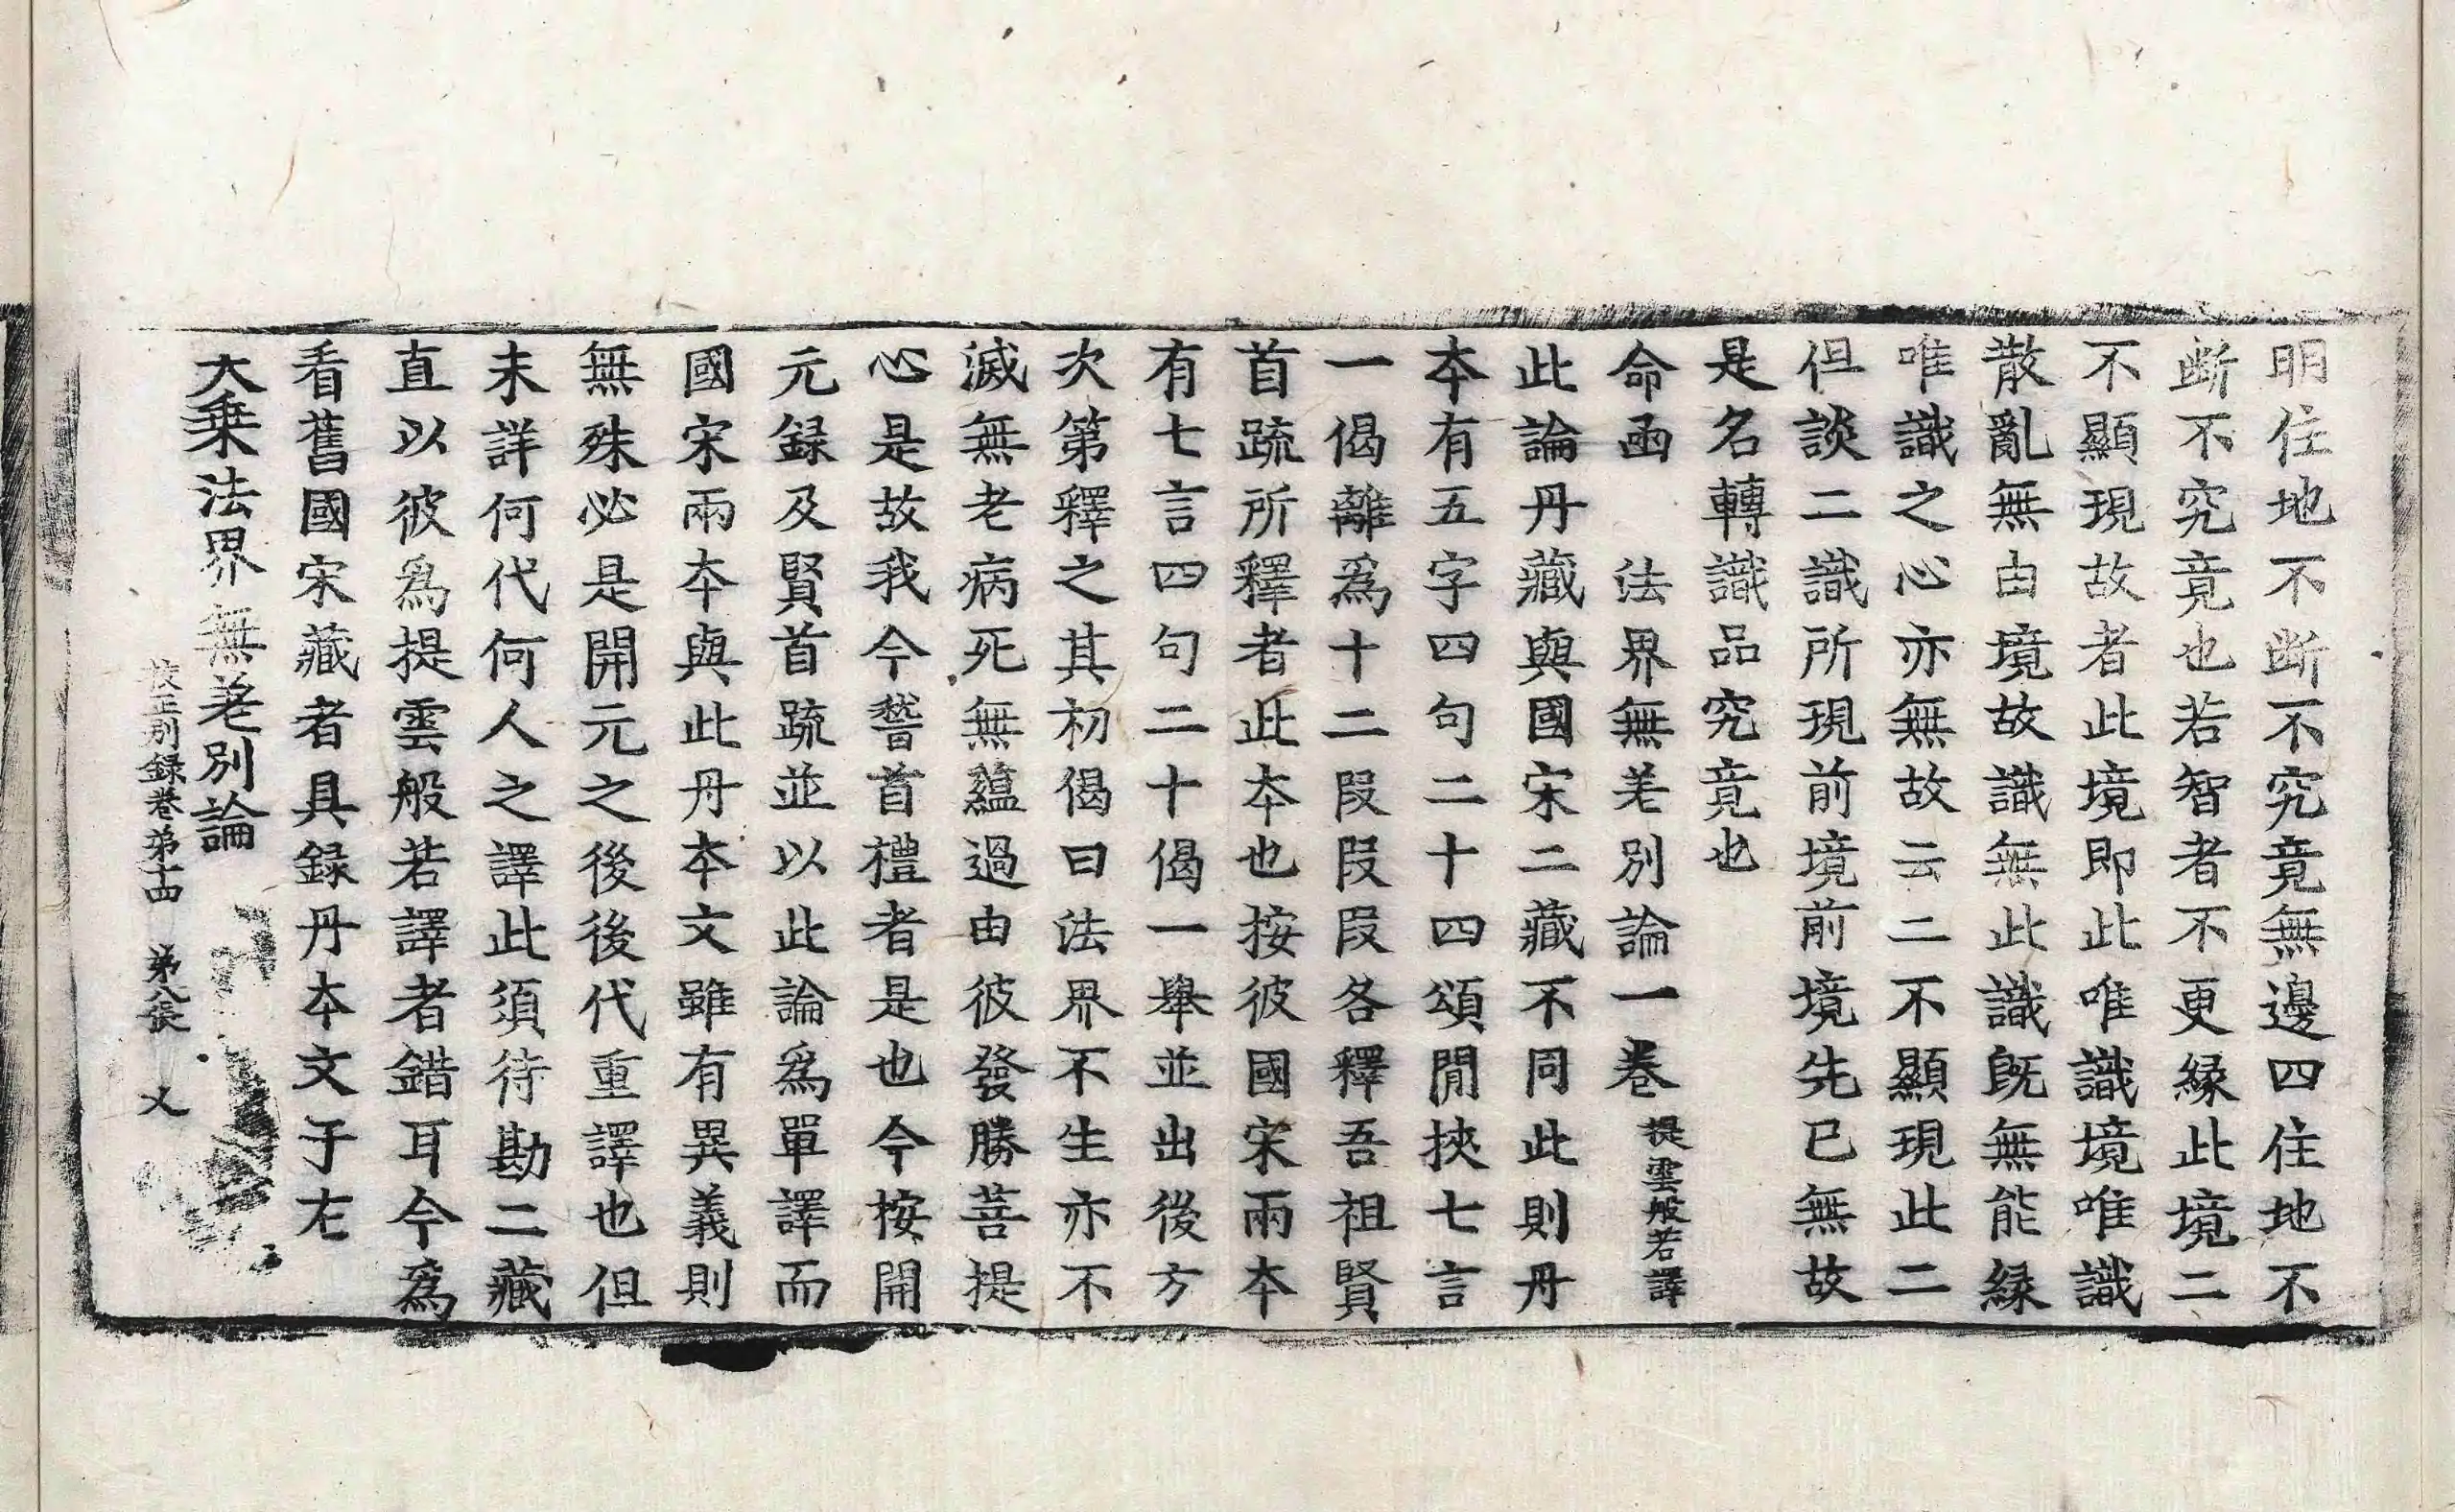 明住地不斷不究竟無邊四住地不
斷不究竟也若智者不更緣此境二
不顯現故者此境即此唯識境唯識
散亂無由境故識無此識旣無能緣
唯識之心亦無故云二不顯現此二
但談二識所現前境前境先已無故
是名轉識品究竟也
命函　法界無差別論一卷 提雲般若譯
此論丹藏與國宋二藏不同此則丹
本有五字四句二十四頌閒挾七言
一偈離爲十二段段段各釋吾祖賢
首䟽所釋者此本也按彼國宋兩本
有七言四句二十偈一舉並出後方
次第釋之其初偈曰法界不生亦不
滅無老病死無蘊過由彼發勝菩提
心是故我今誓首禮者是也今按開
元録及賢首䟽並以此論爲單譯而
國宋兩本與此丹本文雖有異義則
無殊必是開元之後後代重譯也但
未詳何代何人之譯此須待勘二藏
直以彼爲提雲般若譯者錯耳今爲
看舊國宋藏者具録丹本文于左
大乗法界無差別論
校正別録卷第十四　第八張　乂